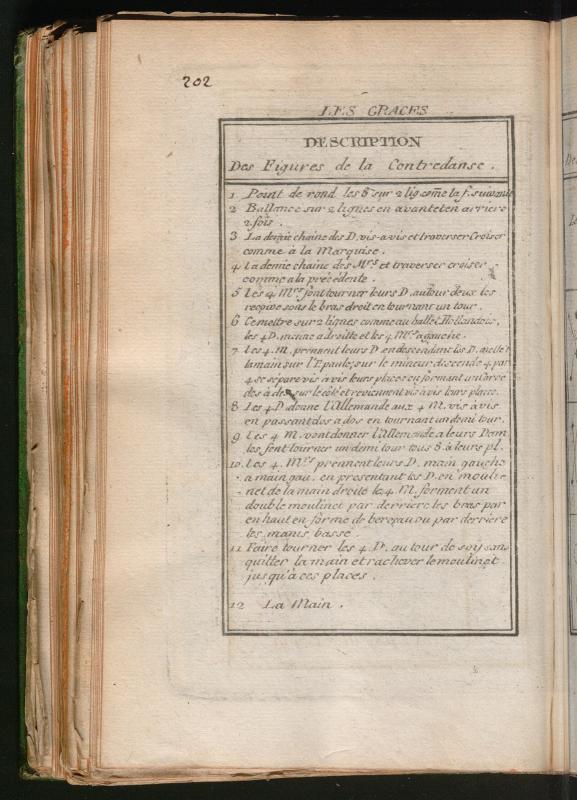 202
LES GRACES
DESCRIPTION
Des Figures de la Contredanse.
1 Point de rond les 8 sur 2 lig. com̃e la f. suivante
2 Ballance sur 2 lignes en avant et en arriere
2 fois.
3 La demie chaine des D. vis-a-vis et traverser Croiser
comme à la Marquise.
4 la demie chaine des Mrs et traverser croiser
comme a la précédente.
5 les 4 Mrs font tourner leurs D. autour deux les
reçoive sous le bras droit en tournant un tour.
6 Ce mettre sur 2 lignes comme au ballet Hollandois,
les 4 D. menne a droitte et les 4 Mrs a gauche.
7 Les 4. M. prennent leurs D. en descendant les D.
la main sur l'Epaule, sur le mineur discende 4 par
4 se sépare vis a vis leurs places en formant un
dos à dos sur le côté et reviennent vis à vis leurs places.
8 Les 4 D. donne l'Allemande aux 4 M. vis à vis
en passant dos a dos en tournant un demi tour.
9 les 4 M. vont donner l'allemande a leurs Dam.
les font tourner un demi tour tous 8. à leurs pl.
10. les 4. Mrs prennent leurs D. main gauche
a main gau. en presentant les D. en mouli-
net de la main droite les 4 M. forment un
double moulinet par derriere les bras par
en haut en forme de berceau ou par derriere
les mains basse.
11 Faire tourner les 4 D. au tour de soy sans
quitter la main et rachever le moulinet
jusqu'à ces places.
12 La Main.